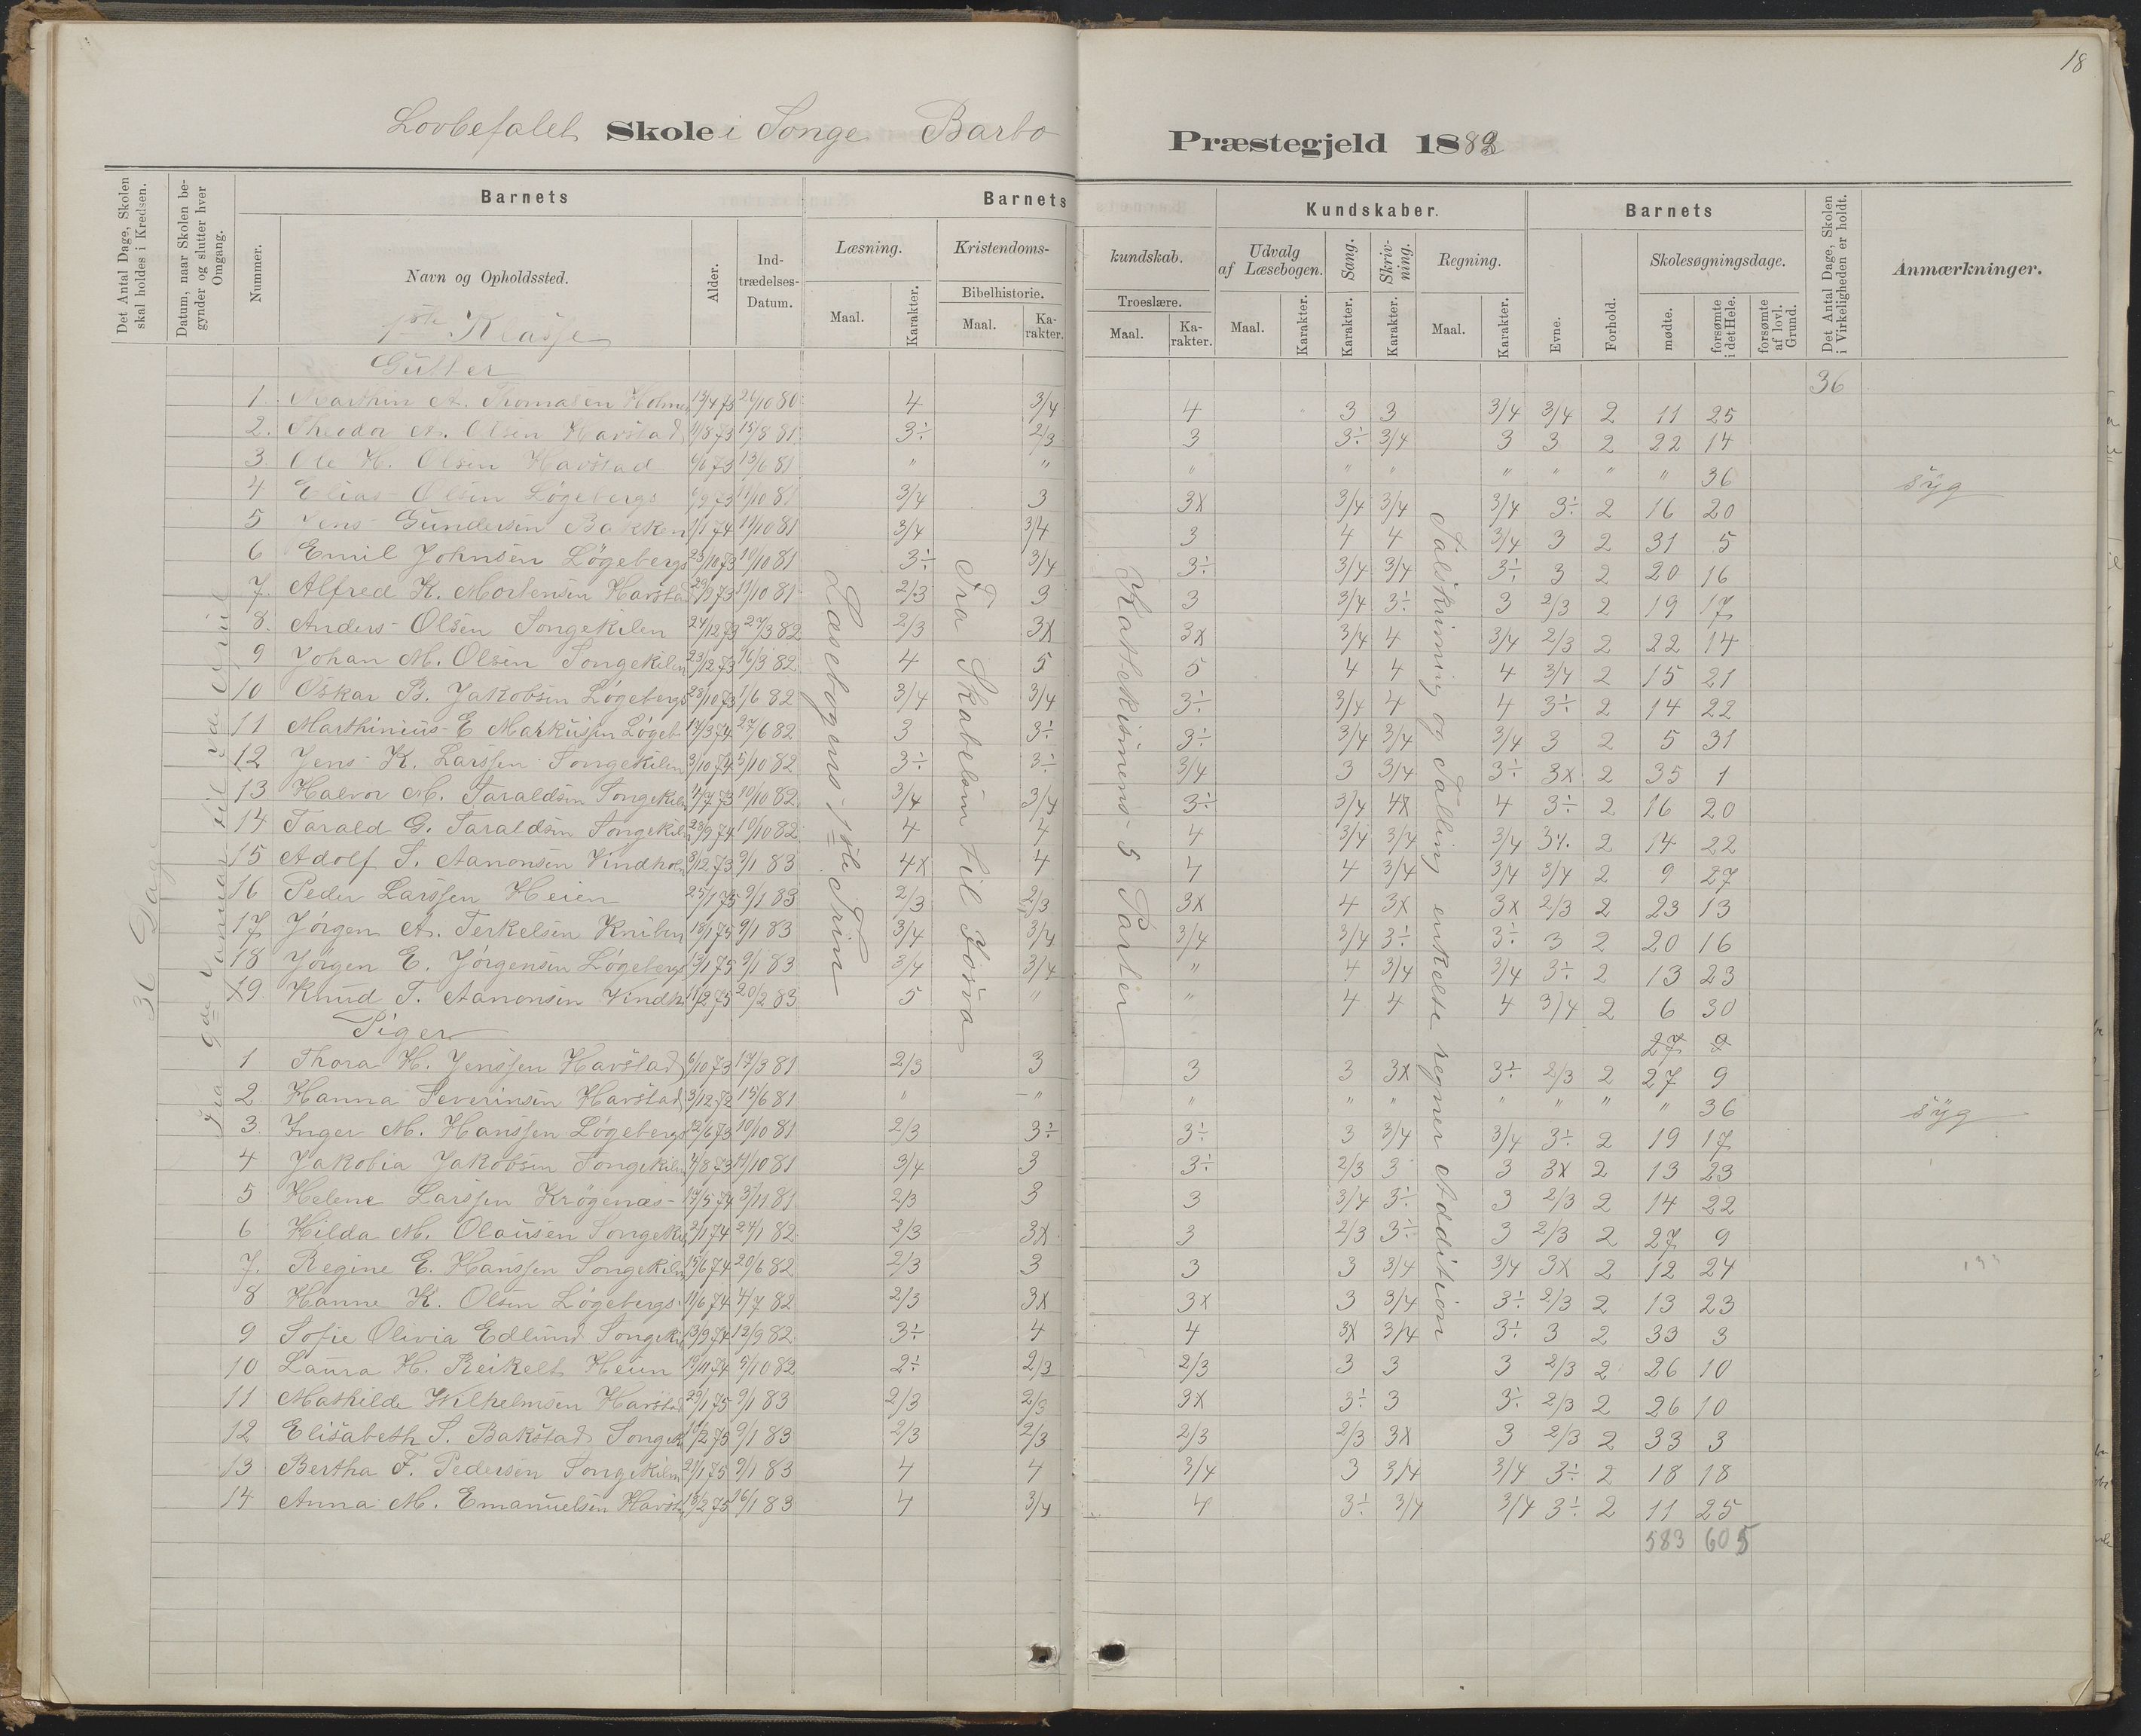 18
Lovbefalet Skole i Songe Barbo Præstegjeld 1883
Det Antal Dage, Skolen skal holdes i Kredsen.
Datum, naar Skolen begynder og slutter hver Omgang.
Barnets
Barnets Kundskaber.
Barnets
Det Antal Dage, Skolen i Virkeligheden er holdt.
Anmærkninger.
Nummer.
Navn og Opholdssted.
Alder.
Indtrædelses-Datum.
Læsning.
Kristendomskundskab.
Udvalg af Læsebogen.
Sang.
Skrivning.
Regning.
Evne.
Forhold.
Skolesøgningsdage.
Bibelhistorie.
Troeslære.
Maal. Karakter. Maal. Karakter. Maal. Karakter. Maal. Karakter. Karakter. Karakter. Maal. Karakter.
mødte.
forsømte i det Hele.
forsømte af lovl. Grund.
36 Dage
Fra 9de Januar til
Læsebogens 1ste Trin
Fra Skabelsen til Josva
Katekismens 5 Parter
Talskrivning og Talling enkelte regner Addition
1ste Klasse
Gutter
36
1. Marthin A. Thomasen Holmen 13/4 73 26/10 80 4 3/4 4 3 3 3/4 3/4 2 11 25
2. Theodor A. Olsen Havstad 11/8 73 15/8 81 3÷ 2/3 3 3÷ 3/4 3 3 2 22 14
3. Ole H. Olsen Havstad 6/6 73 13/6 81 " " " " " " " " " 36 syg
4 Elias Olsen Løgebergs 6/9 73 11/10 81 3/4 3 3x 3/4 3/4 3/4 3÷ 2 16 20
5 Jens Gundersen Bakken 1/1 74 11/10 81 3/4 3/4 3 4 4 3/4 3 2 31 5
6 Emil Johnsen Løgebergs 23/10 73 10/10 81 3÷ 3/4 3÷ 3/4 3/4 3÷ 3 2 20 16
7. Alfred K. Mortensen Havstad 29/9 73 11/10 81 2/3 3 3 3/4 3÷ 3 2/3 2 19 17
8. Anders Olsen Songekilen 24/12 73 27/3 82 2/3 3x 3x 3/4 4 3/4 2/3 2 22 14
9 Johan M. Olsen Songekilen 23/12 73 16/3 82 4 5 5 4 4 4 3/4 2 15 21
10 Oskar B. Jakobsen Løgebergs 23/10 73 1/6 82 3/4 3/4 3÷ 3/4 4 4 3÷ 2 14 22
11 Marthinius E Markussen Løgeb. 17/3 74 27/6 82 3 3÷ 3÷ 3/4 3/4 3/4 3 2 5 31
12 Jens K. Larssen Songekilen 3/10 74 5/10 82 3÷ 3÷ 3/4 3 3/4 3÷ 3x 2 35 1
13 Halvor M. Taraldsen Songekilen 4/7 73 10/10 82 3/4 3/4 3÷ 3/4 4x 4 3÷ 2 16 20
14 Tarald G. Taraldsen Songekil 23/9 74 10/10 82 4 4 4 3/4 3/4 3/4 3÷ 2 14 22
15 Adolf S. Aanonsen Vindhol 3/12 73 9/1 83 4x 4 4 4 3/4 3/4 3/4 2 9 27
16 Peder Larssen Heien 25/1 75 9/1 83 2/3 2/3 3x 4 3x 3x 2/3 2 23 13
17. Jørgen A. Terkelsen Kniben 18/1 75 9/1 83 3/4 3/4 3/4 3/4 3÷ 3÷ 3 2 20 16
18 Jørgen E. Jørgensen Løgebergs 13/1 75 9/1 83 3/4 3/4 " 4 3/4 3/4 3÷ 2 13 23
19. Knud T. Aanonsen Vindh 11/2 75 20/2 83 5 " " 4 4 4 3/4 2 6 30
Piger
27 9
1 Thora H. Jenssen Havstad 6/10 73 17/3 81 2/3 3 3 3 3x 3÷ 2/3 2 27 9
2 Hanna Severinsen Havstad 3/12 72 15/6 81 " " " " " " " " " 36 syg
3 Inger M. Hanssen Løgebergs 12/6 73 10/10 81 2/3 3÷ 3÷ 3 3/4 3/4 3÷ 2 19 17
4 Jakobia Jakobsen Songekilen 4/8 73 11/10 81 3/4 3 3÷ 2/3 3 3 3x 2 13 23
5 Helene Larssen Krøgenæs 17/5 74 3/11 81 2/3 3 3 3/4 3÷ 3 2/3 2 14 22
6 Hilda M. Olausen Songekil 2/1 74 24/1 82 2/3 3x 3 2/3 3÷ 3 2/3 2 27 9
7. Regine E. Hanssen Songekilen 15/6 74 20/6 82 2/3 3 3 3 3/4 3/4 3x 2 12 24
8 Hanne K. Olsen Løgebergs 11/6 74 4/7 82 2/3 3x 3x 3 3/4 3÷ 2/3 2 13 23
9 Sofie Olivia Edlund Songekil 13/9 74 12/9 82 3÷ 4 4 3x 3/4 3÷ 3 2 33 3
10 Laura H. Reikelt Heien 19/11 74 5/10 82 2÷ 2/3 2/3 3 3 3 2/3 2 26 10
11 Mathilde Wilhelmsen Havstad 29/1 75 9/1 83 2/3 2/3 3x 3÷ 3 3÷ 2/3 2 26 10
12 Elisabeth S. Bakstad Songek 10/2 75 9/1 83 2/3 2/3 2/3 2/3 3x 3 2/3 2 33 3
13 Bertha F. Pedersen Songekilen 21/1 75 9/1 83 4 4 3/4 3 3/4 3/4 3÷ 2 18 18
14 Anna M. Emanuelsen Havst 18/2 75 16/1 83 4 3/4 4 3÷ 3/4 3/4 3÷ 2 11 25
583 605